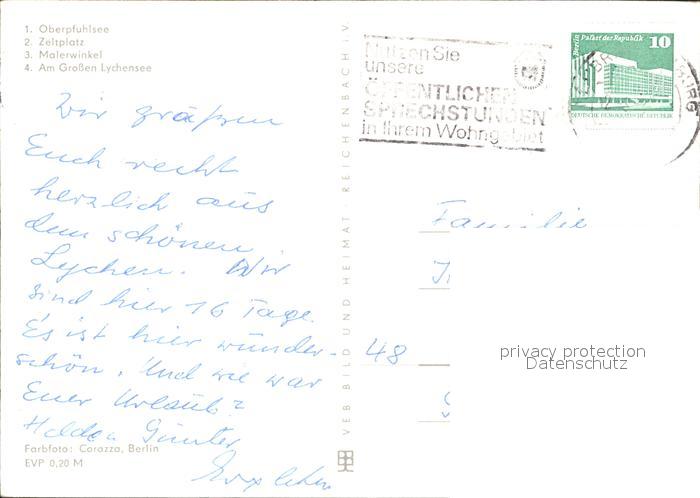 1. Oberpfuhlsee
2. Zeltplatz
3. Malerwinkel
4. Am Großen Lychensee
Wir grüßen
Euch recht
herzlich aus
dem schönen
Lychen. Wir
sind hier 16 Tage.
Es ist hier wunder-
schön. Und wie war
Euer Urlaub?
Günter
Farbfoto: Corazza, Berlin
EVP 0,20 M
VEB BILD UND HEIMAT · REICHENBACH I. V.
Nutzen Sie
unsere
ÖFFENTLICHEN
SPRECHSTUNDEN
in Ihrem Wohngebiet
Berlin Palast der Republik 10
DEUTSCHE DEMOKRATISCHE REPUBLIK
Familie
48
privacy protection
Datenschutz